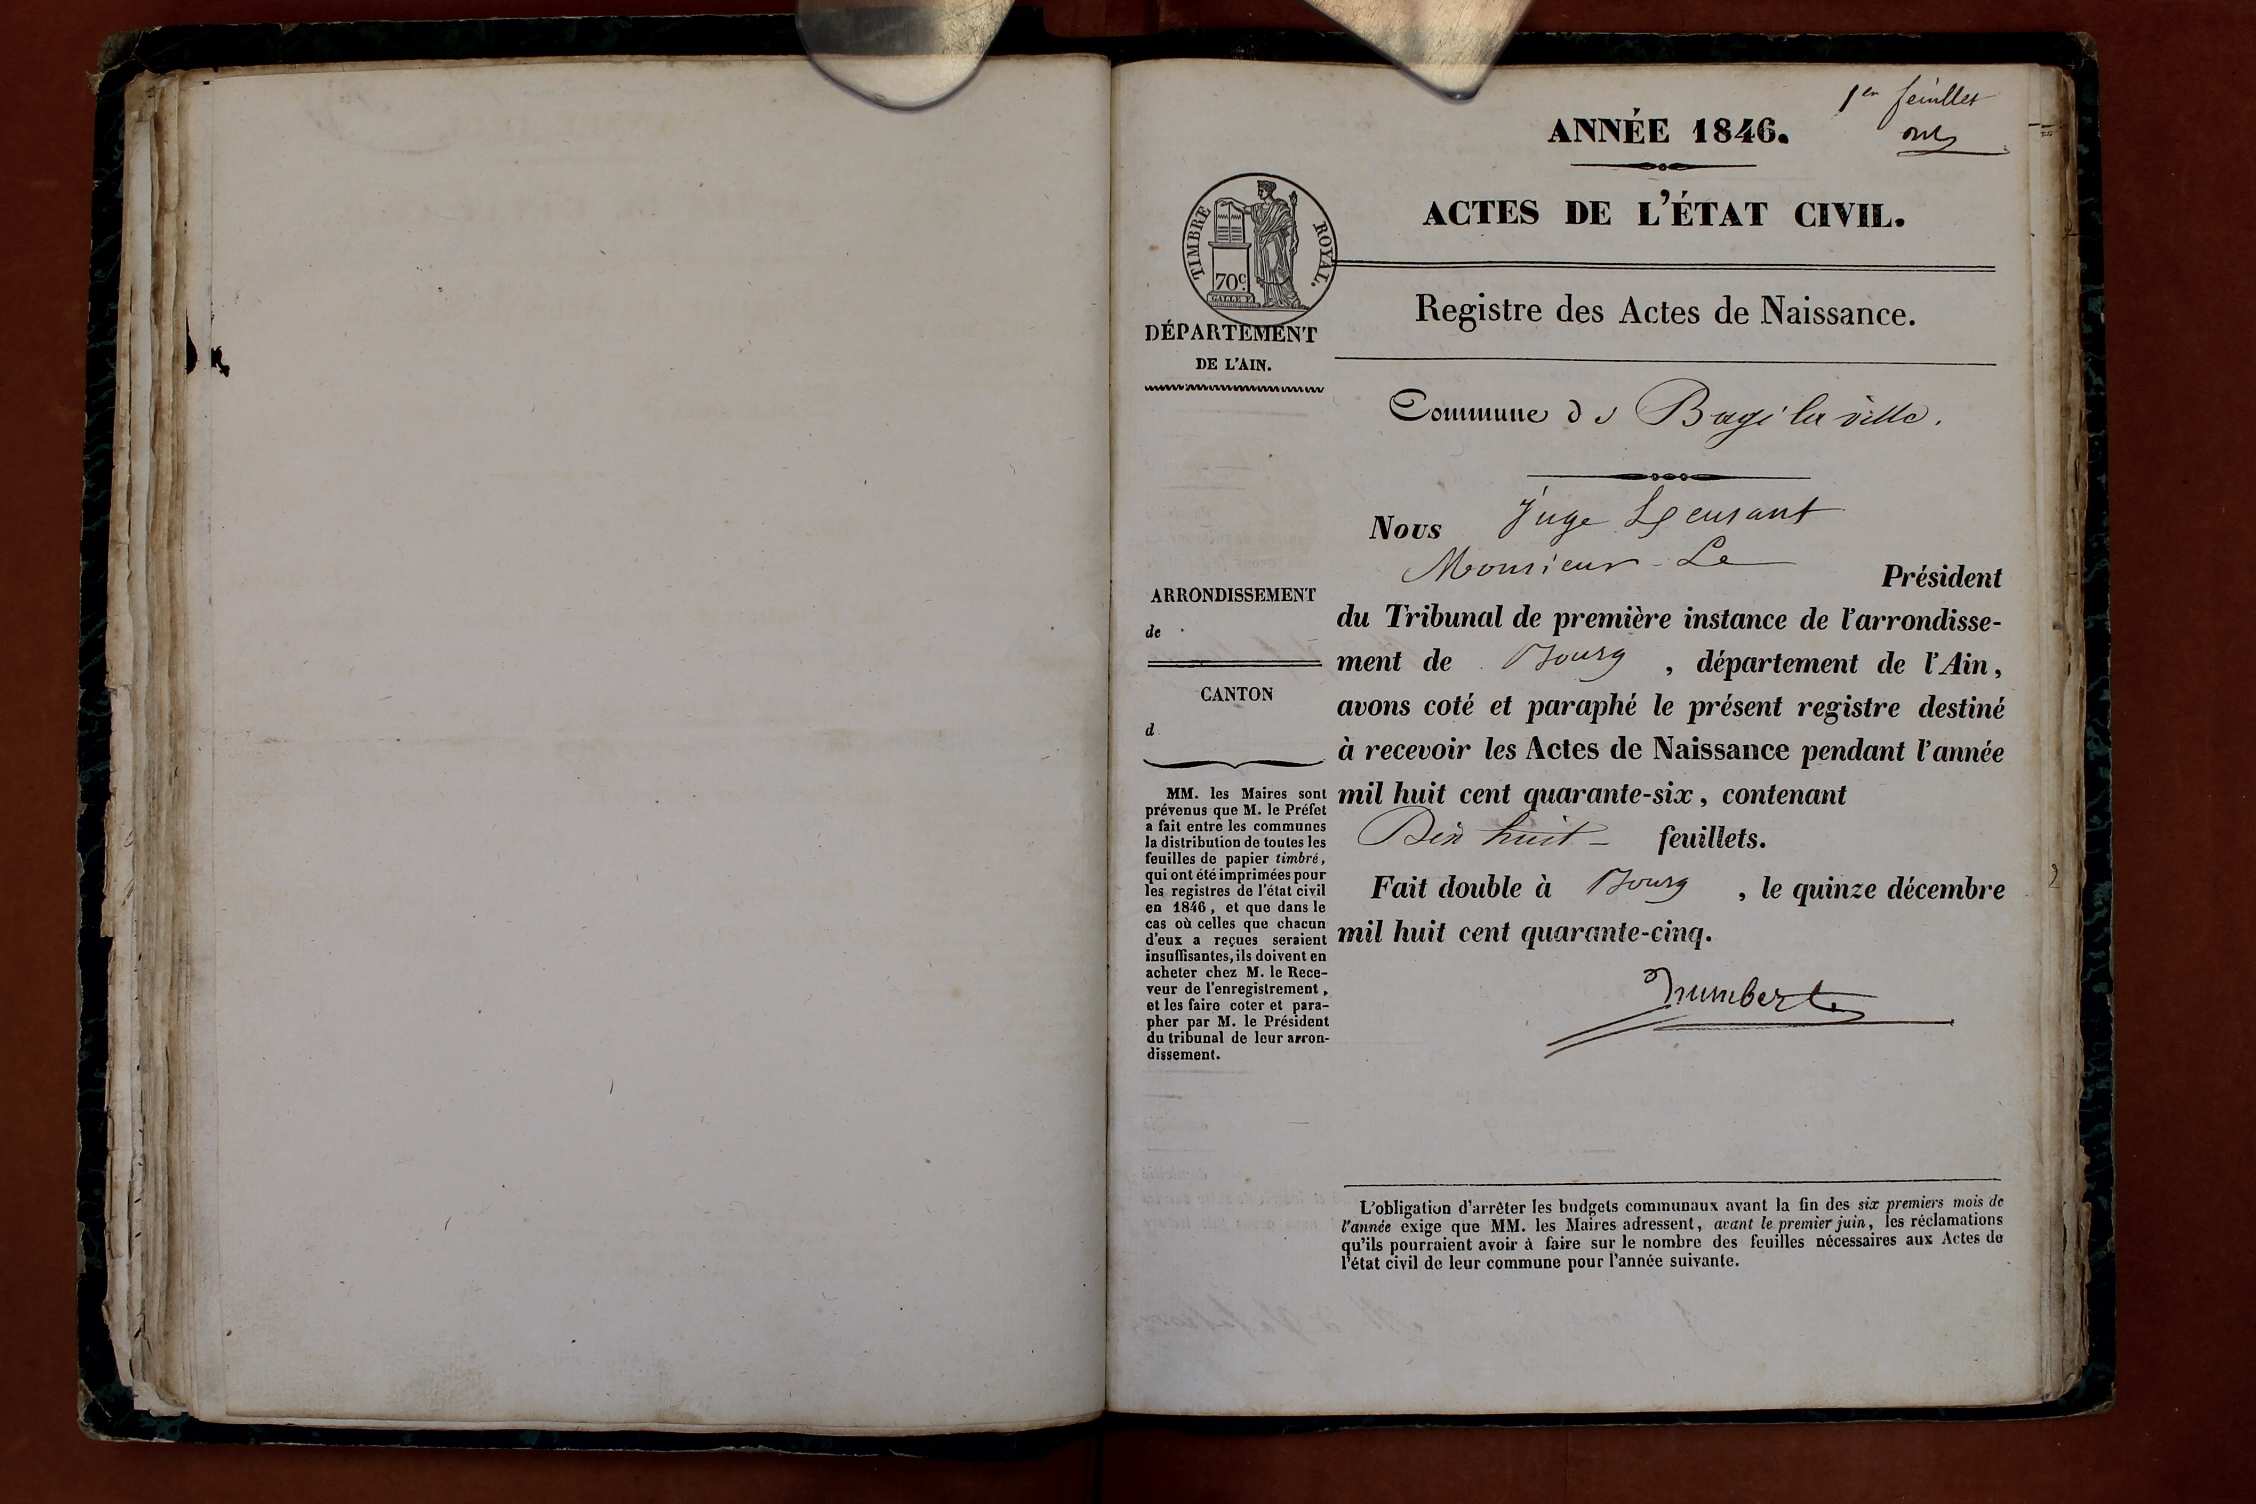 1er feuillet
ANNÉE 1846.
ACTES DE L'ÉTAT CIVIL.
TIMBRE ROYAL.
70c.
Registre des Actes de Naissance.
DÉPARTEMENT
DE L'AIN.
Commune de Bagé la ville.
Nous Juge
Monsieur Le Président
du Tribunal de première instance de l'arrondisse-
ment de Bourg, département de l'Ain,
avons coté et paraphé le présent registre destiné
à recevoir les Actes de Naissance pendant l'année
mil huit cent quarante-six, contenant
Dix huit feuillets.
Fait double à Bourg, le quinze décembre
mil huit cent quarante-cinq.
ARRONDISSEMENT
de
CANTON
d
MM. les Maires sont
prévenus que M. le Préfet
a fait entre les communes
la distribution de toutes les
feuilles de papier timbré,
qui ont été imprimées pour
les registres de l'état civil
en 1846, et que dans le
cas où celles que chacun
d'eux a reçues seraient
insuffisantes, ils doivent en
acheter chez M. le Rece-
veur de l'enregistrement,
et les faire coter et para-
pher par M. le Président
du tribunal de leur arron-
dissement.
L'obligation d'arrêter les budgets communaux avant la fin des six premiers mois de
l'année exige que MM. les Maires adressent, avant le premier juin, les réclamations
qu'ils pourraient avoir à faire sur le nombre des feuilles nécessaires aux Actes de
l'état civil de leur commune pour l'année suivante.